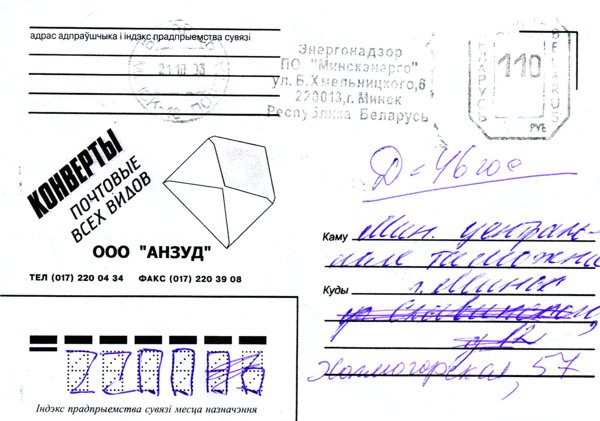 адрас адпраўшчыка і індэкс прадпрыемства сувязі
21.10.93
Энергонадзор
ПО "Минскэнерго"
ул.Б.Хмельницкого,6
220013,г.Минск
Республика Беларусь
БЕЛАРУСЬ
110
BELARUS
РУБ
КОНВЕРТЫ
ПОЧТОВЫЕ
ВСЕХ ВИДОВ
ООО "АНЗУД"
ТЕЛ (017) 220 04 34 ФАКС (017) 220 39 08
Каму Мин. централь-
ная таможня
Куды г. Минск
12
Холмогорская, 57
Індэкс прадпрыемства сувязі месца назначэння